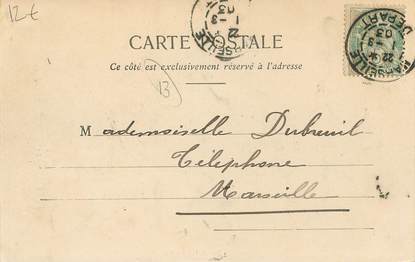 12 €
CARTE POSTALE
Ce côté est exclusivement réservé à l'adresse
13
Mademoiselle Dubreuil
Téléphone
Marseille
MARSEILLE
DEPART
22
3
03